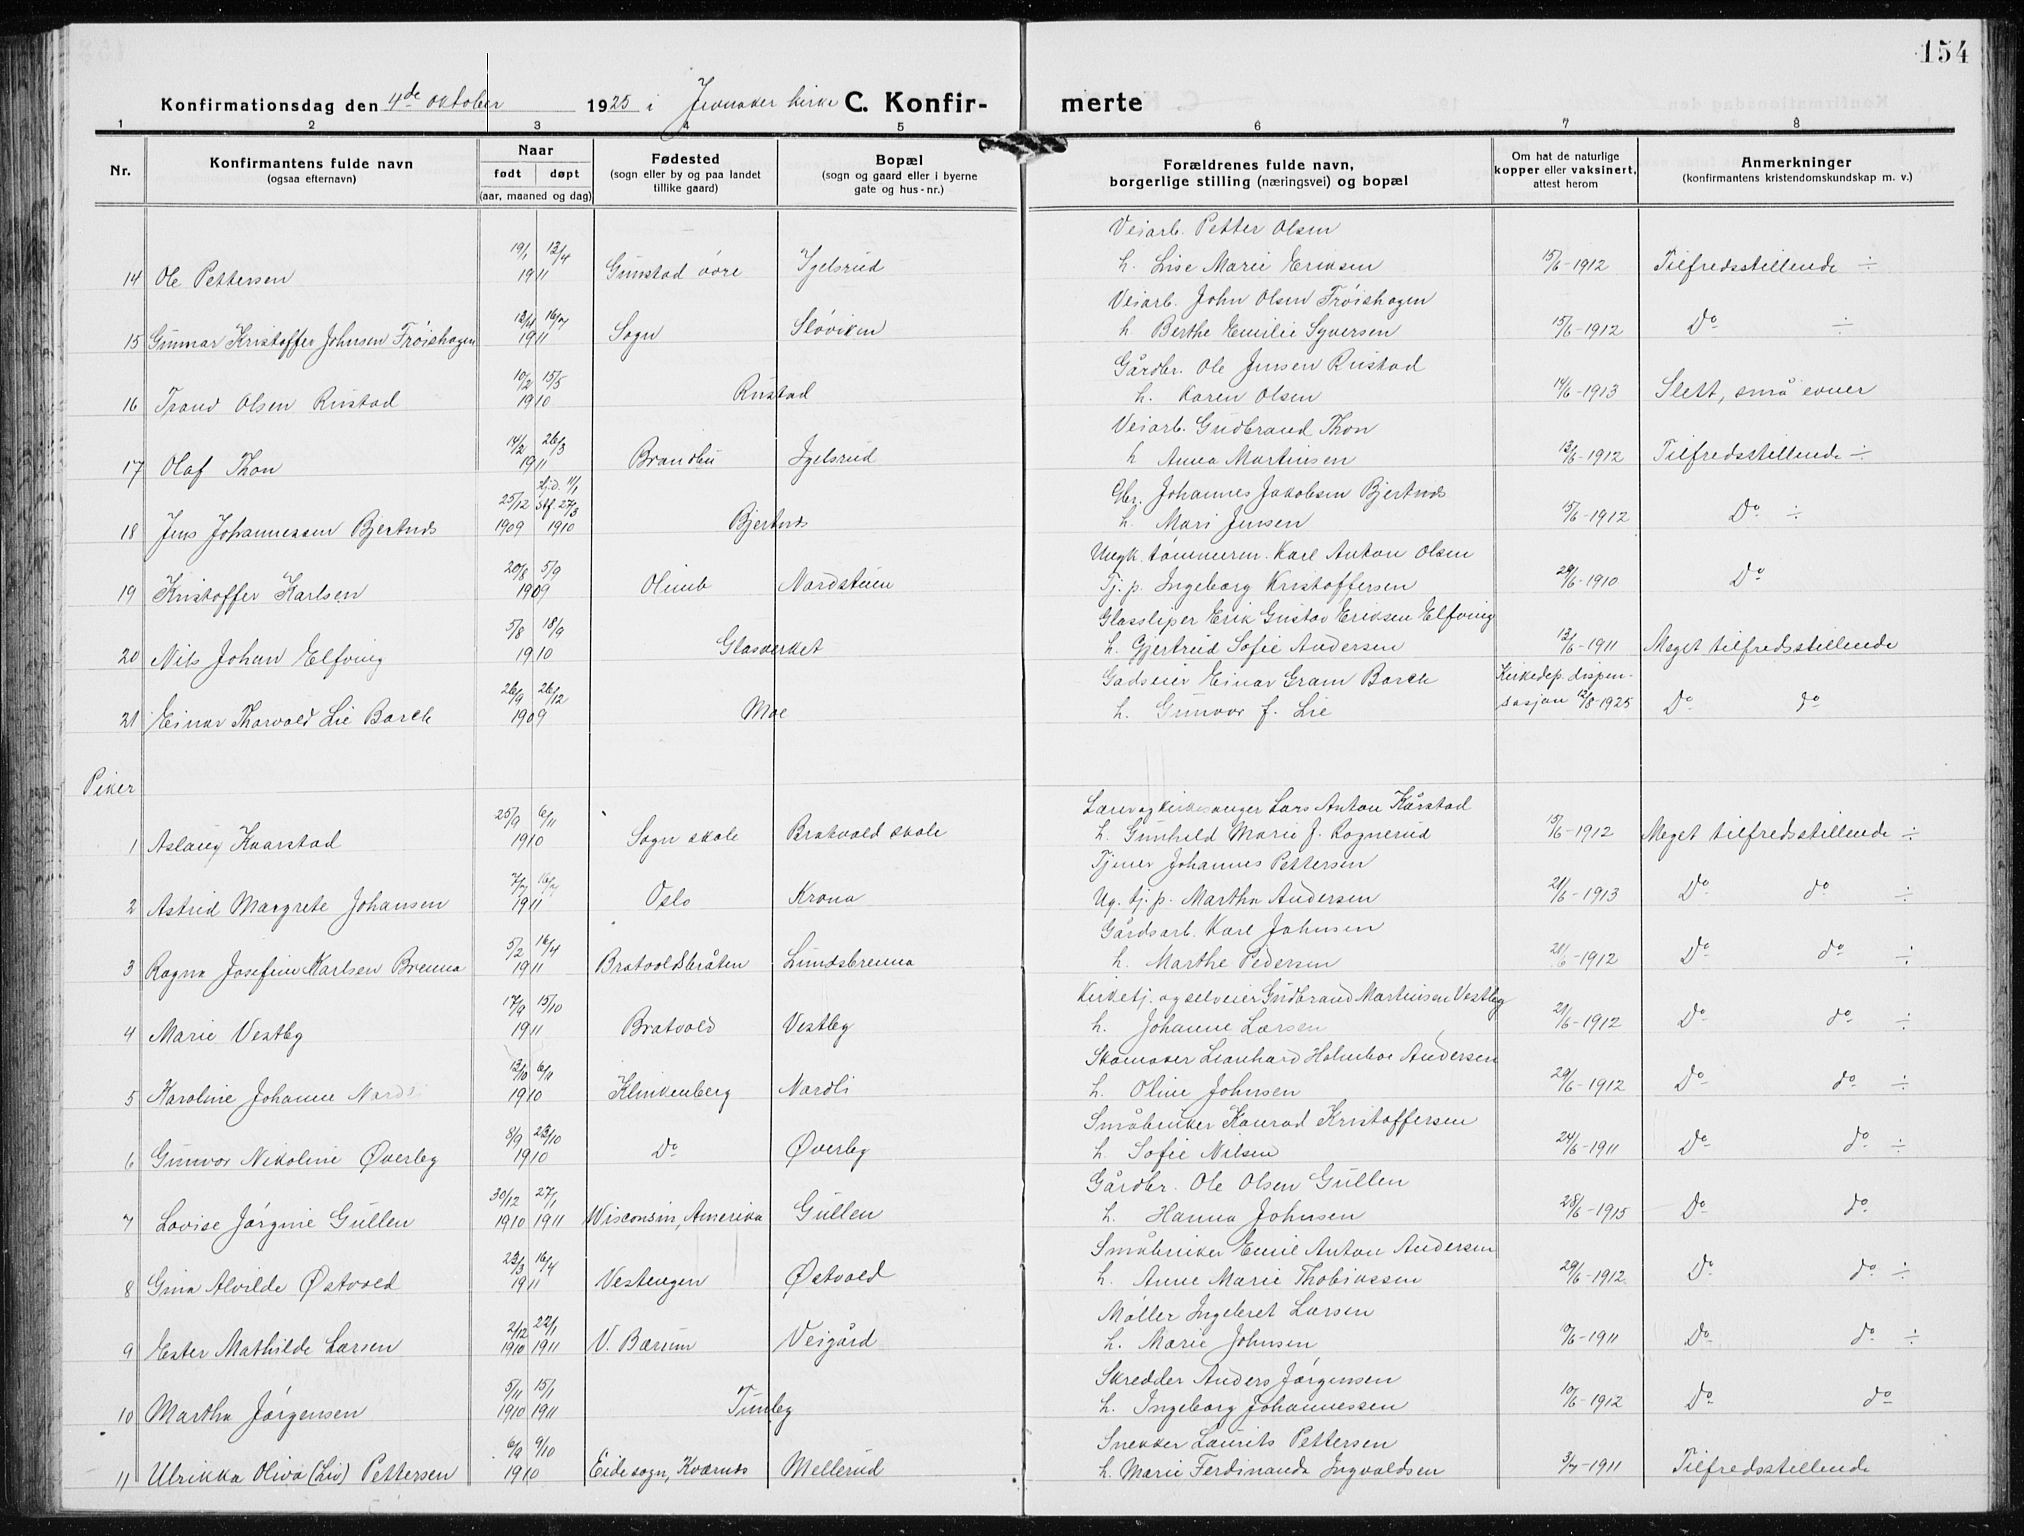 154
Konfirmationsdag den 4de oktober 1925 i Jevnaker kirke C. Konfir- merte
1 2 3 4 5 6 7 8
Nr.
Konfirmantens fulde navn
(ogsaa efternavn)
Naar
født døpt
(aar, maaned og dag)
Fødested
(sogn eller by og paa landet
tillike gaard)
Bopæl
(sogn og gaard eller i byerne
gate og hus-nr.)
Forældrenes fulde navn,
borgerlige stilling (næringsvei) og bopæl
Om hat de naturlige
kopper eller vaksinert,
attest herom
Anmerkninger
(konfirmantens kristendomskundskap m. v.)
Veiarb. Petter Olsen
14 Ole Pettersen 19/1 13/4 1911 Gunstad övre Igelsrud h. Lise Marie Eriksen 15/6-1912 Tilfredsstillende ÷
Veiarb. John Olsen Tröishagen
15 Gunnar Kristoffer Johnsen Tröishagen 16/7 1911 Sogn Slöviken h. Berthe Emilie Syversen 15/6-1912 Do ÷
Gårdbr. Ole Jensen Rustad
16 Trond Olsen Rustad 10/2 15/5 1910 Rustad h. Karen Olsen 14/6-1913 Slett, små evner
Veiarb. Gudbrand Thon
17 Olaf Thon 14/2 26/3 1911 Brandbu Igelsrud h. Anna Martinsen 13/6-1912 Tilfredsstillende ÷
Gbr. Johannes Jakobsen Bjertnes
18 Jens Johannessen Bjertnes 25/12 1909 hjd. 11/1 stf. 27/3 1910 Bjertnes h. Mari Jensen 15/6-1912 Do ÷
Ungk. tömmerm. Karl Anton Olsen
19 Kristoffer Karlsen 20/8 5/9 1909 Olimb Nordstuen Tj. p. Ingeborg Kristoffersen 1910 Do
Glassliper Erik Gustav Eriksen Elfving
20 Nils Johan Elfving 5/8 18/9 1910 Glasverket h. Gjertrud Sofie Andersen 13/6-1911 Meget tilfredsstillende
Godseier Einar Gram Borch Kirkedep. dispen-
21 Einar Thorvald Lie Borch 26/9 26/12 1909 Moe h. Gunvor f. Lie sasjon 12/8-1925 Do do
Piker
Lærer og kirkesanger Lars Anton Kårstad
1 Aslaug Kaarstad 25/9 6/11 1910 Sogn skole Bratvold skole h. Gunhild Marie J. Rognerud 15/6-1912 Meget tilfredsstillende ÷
Tjener Johannes Pettersen
2 Astrid Margrete Johansen 7/7 16/7 1911 Oslo Krona Ug. tj. p. Martha Andersen 21/6-1913 Do do ÷
Gårdsarb. Karl Johnsen
3 Ragna Josefine Karlsen Brenna 5/2 16/4 1911 Bratvoldsbråten Lundsbrenna h. Marthe Pedersen 21/6-1912 Do do ÷
Kirketj. og selveier Gudbrand Martinsen Vestby
4 Marie Vestby 17/9 15/10 1911 Bratvold Vestby h. Johanne Larsen 21/6-1912 Do do ÷
Skomaker Leonhard Holmboe Andersen
5 Karoline Johanne 12/10 6/11 1910 Klinkenberg Nordli h. Oline Johnsen 29/6-1912 Do do ÷
Småbruker Konrad Kristoffersen
6 Gunvor Nikoline Øverby 8/9 23/10 1910 Do Øverby h. Sofie Nilsen 24/6-1911 Do do ÷
Gårdbr. Ole Olsen Gullen
7 Lovise Jörgine Gullen 30/12 1910 27/1 1911 Wisconsin, Amerika Gullen h. Hanna Johnsen 28/6-1915 Do do
Småbruker Emil Anton Andersen
8 Gina Alvilde Østvold 23/3 16/4 1911 Vestengen Østvold h. Anne Marie Thobiassen 29/6-1912 Do do ÷
Möller Ingebret Larsen
9 Ester Mathilde Larsen 2/12 1910 22/1 1911 V. Bærum Veigård h. Marie Johnsen 1911 Do do ÷
Skredder Anders Jörgensen
10 Martha Jörgensen 5/11 1910 15/1 1911 Tunby h. Ingeborg Johannessen 10/6-1912 Do do
Snekker Laurits Pettersen
11 Ulrikka Oliva (Liv) Pettersen 6/9 9/10 1910 Eide sogn, Kværnes Mellerud h. Marie Ferdinanda Ingvaldsen 3/7-1911 Tilfredsstillende